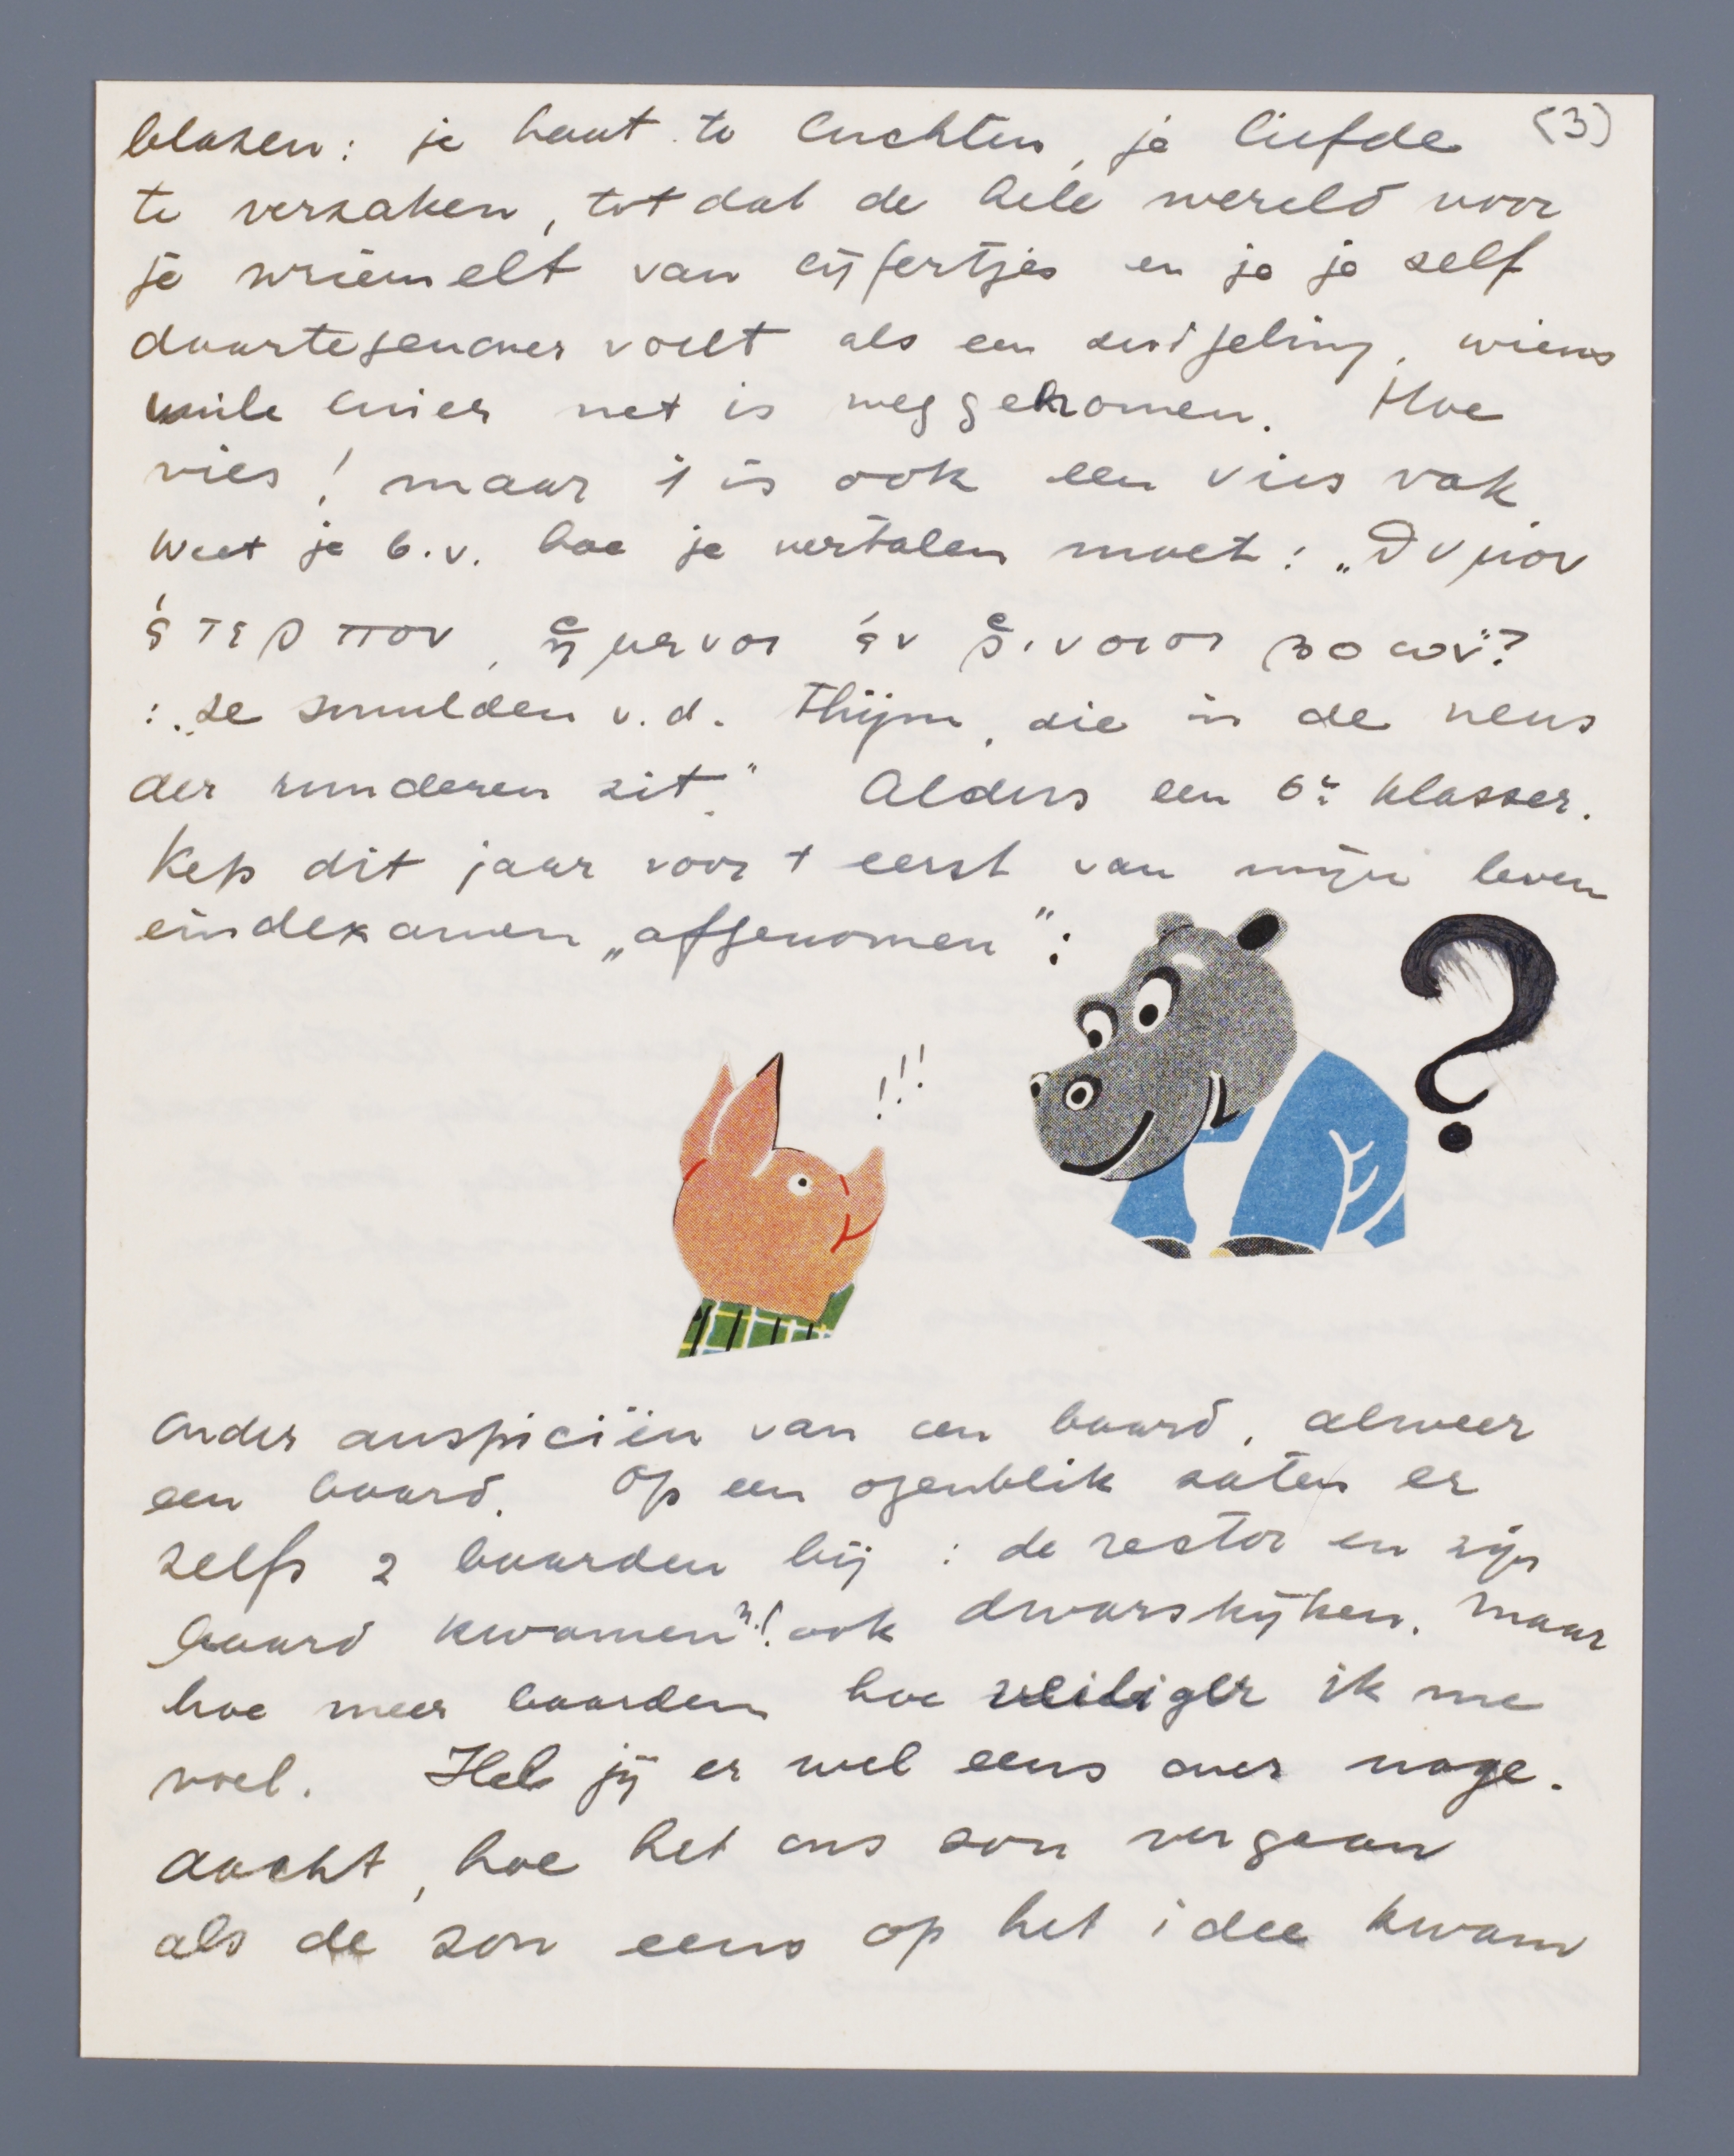 (3)
blazen: je haat te luchten, je liefde
te verzaken, totdat de hele wereld voor
je wriemelt van cijfertjes en je je zelf
daartegenover voelt als een zuigeling, wiens
vuile luier net is weggenomen. Hoe
vies! maar 't is ook een vies vak.
Weet je b.v. hoe je vertalen moet: „θυμον
ἐτερπον, ἥμενοι ἐν ῥινοισι βοων"?
: „ze smulden v.d. thijm, die in de neus
der runderen zit." Aldus een 6e klasser.
'k eb dit jaar voor 't eerst van mijn leven
eindexamen „afgenomen":
!!!
?
onder auspiciën van een baard, alweer
een baard. Op een ogenblik zaten er
zelfs 2 baarden bij: de rector en zijn
baard kwamen ook dwarskijken. Maar
hoe meer baarden hoe veiliger ik me
voel. Heb jij er wel eens over nage-
dacht, hoe het ons zou vergaan
als de zon eens op het idee kwam